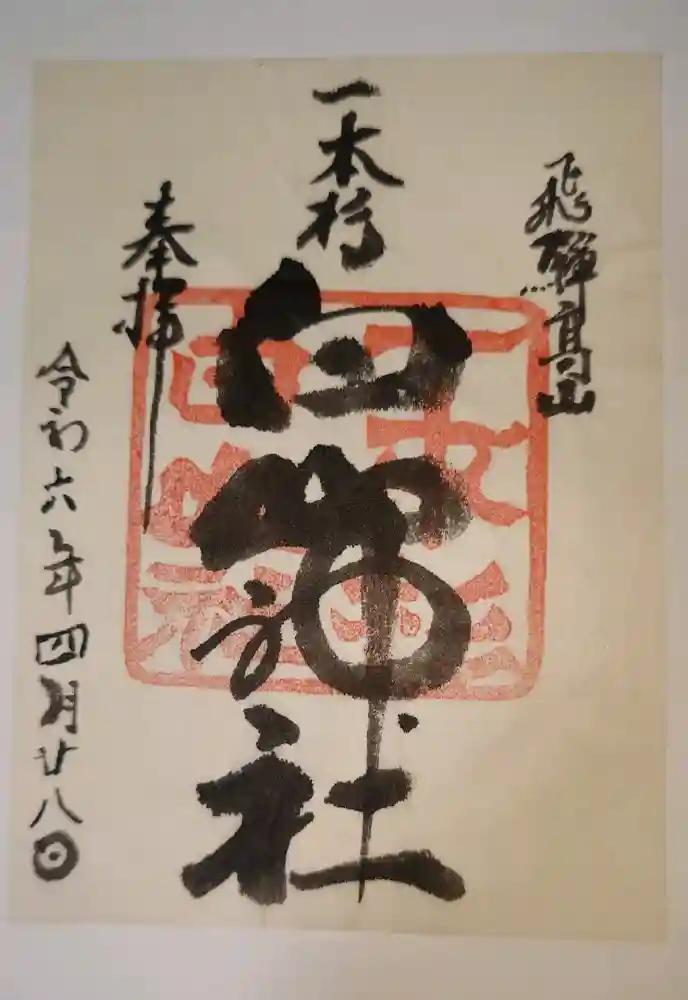 飛騨高山
一本杉
白山神社
奉拝
令和六年四月廿八日